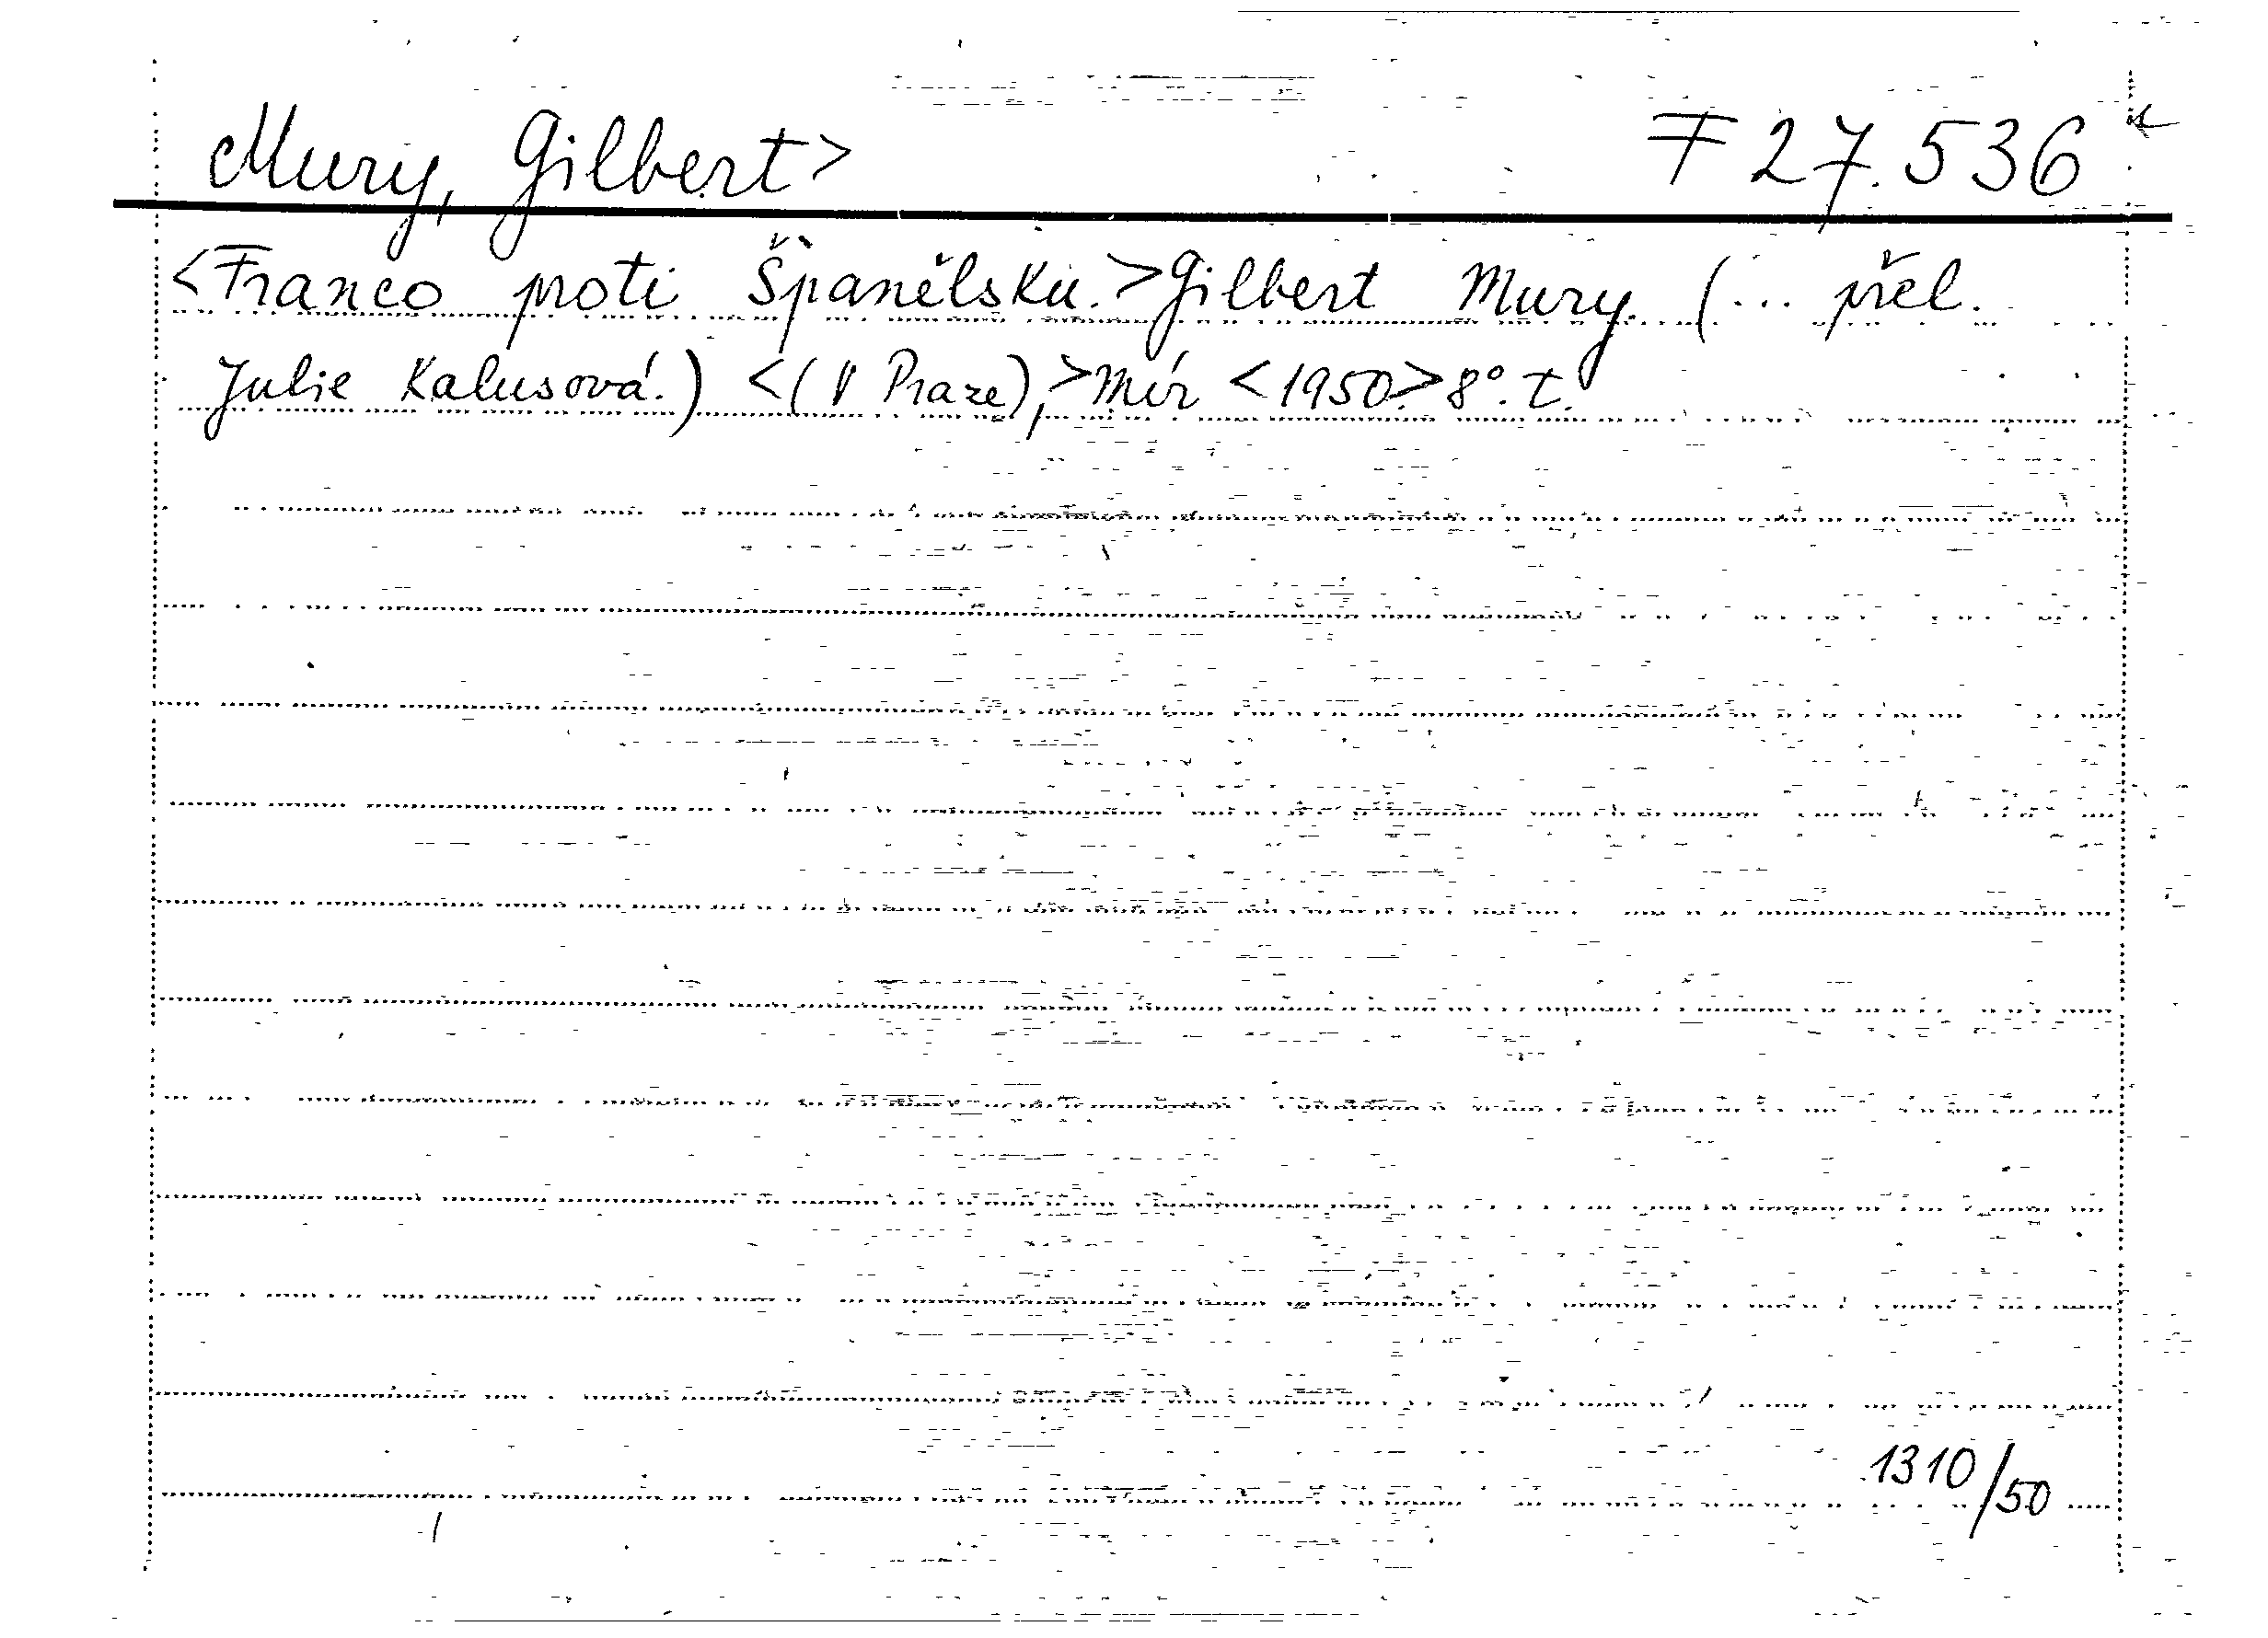 Mury, Gilbert> F 27.536
<Franco proti Španělsku.>Gilbert Mury. (... přel.
Julie Kalusová.) <(V Praze),>Mír <1950>8°. t.
1310/50